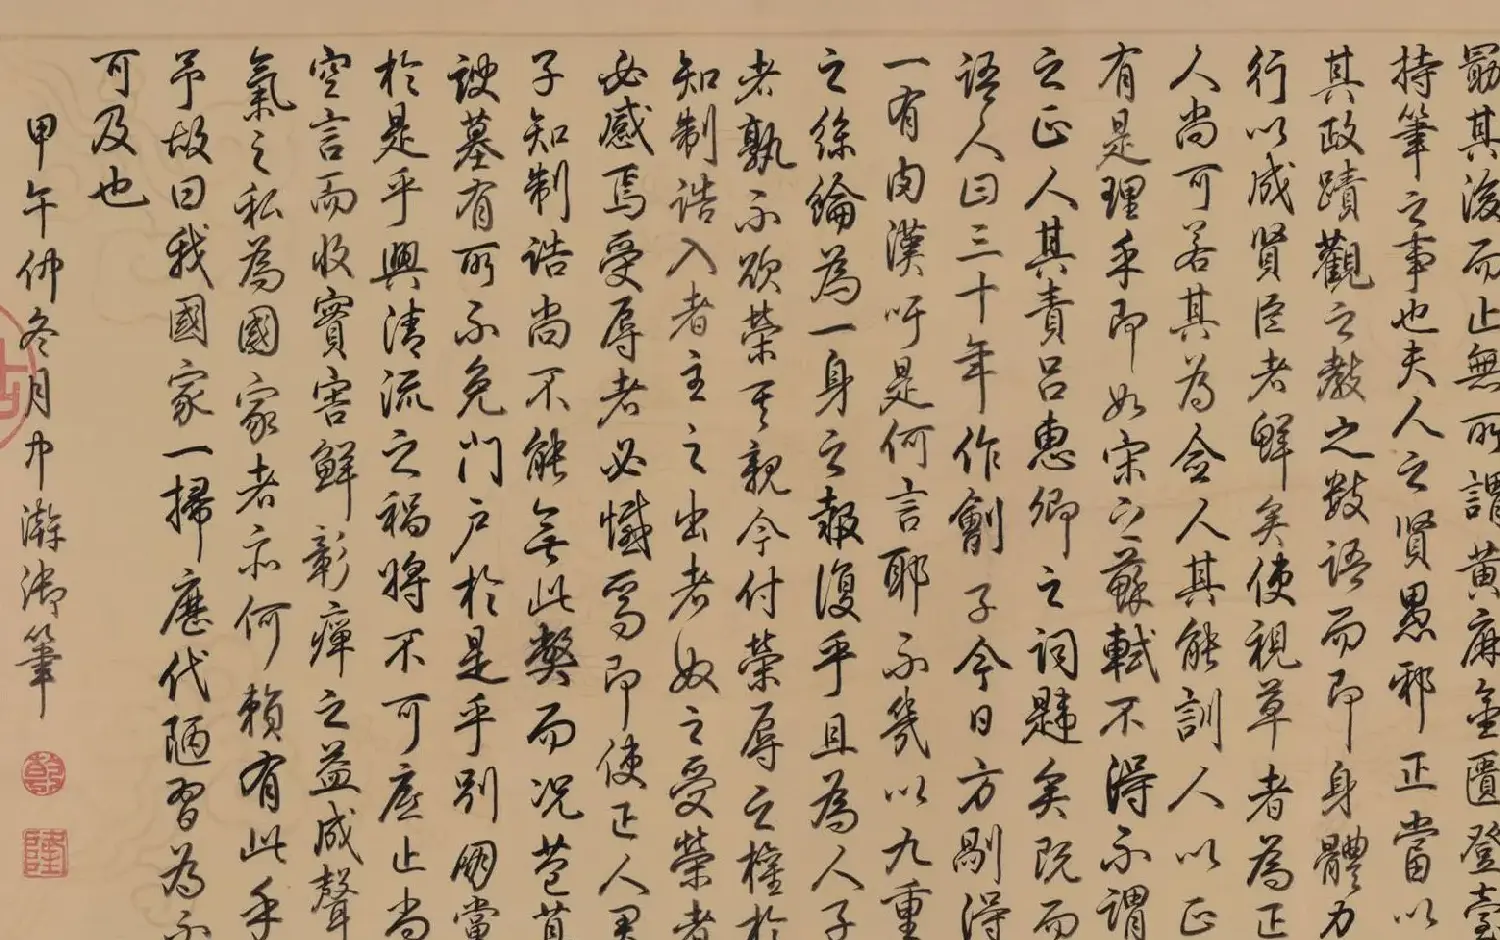 勗其後而止無所謂黃麻金匱登臺
持筆之事也夫人之賢愚邪正當以
其政蹟觀之數之數語而即身體力
行以成賢臣者鮮矣使視草者為正
人尚可若其為僉人其能訓人以正
有是理乎即如宋之蘇軾不得不謂
之正人其責呂惠卿之詞韙矣既而
語人曰三十年作劊子今日方剮得
一有肉漢吁是何言耶不幾以九重
之絲綸為一身之報復乎且為人子
者孰不欲榮其親今付榮辱之權於
知制誥入者主之出者奴之受榮者
必感焉受辱者必憾焉即使正人君
子知制誥尚不能無此弊而況苞苴
諛墓有所不免門戶於是乎別朋黨
於是乎興清流之禍將不可底止尚
空言而收實害鮮彰癉之益成聲
氣之私為國家者亦何賴有此乎
予故曰我國家一掃歷代陋習為不
可及也
甲午仲冬月中澣御筆
乾
隆